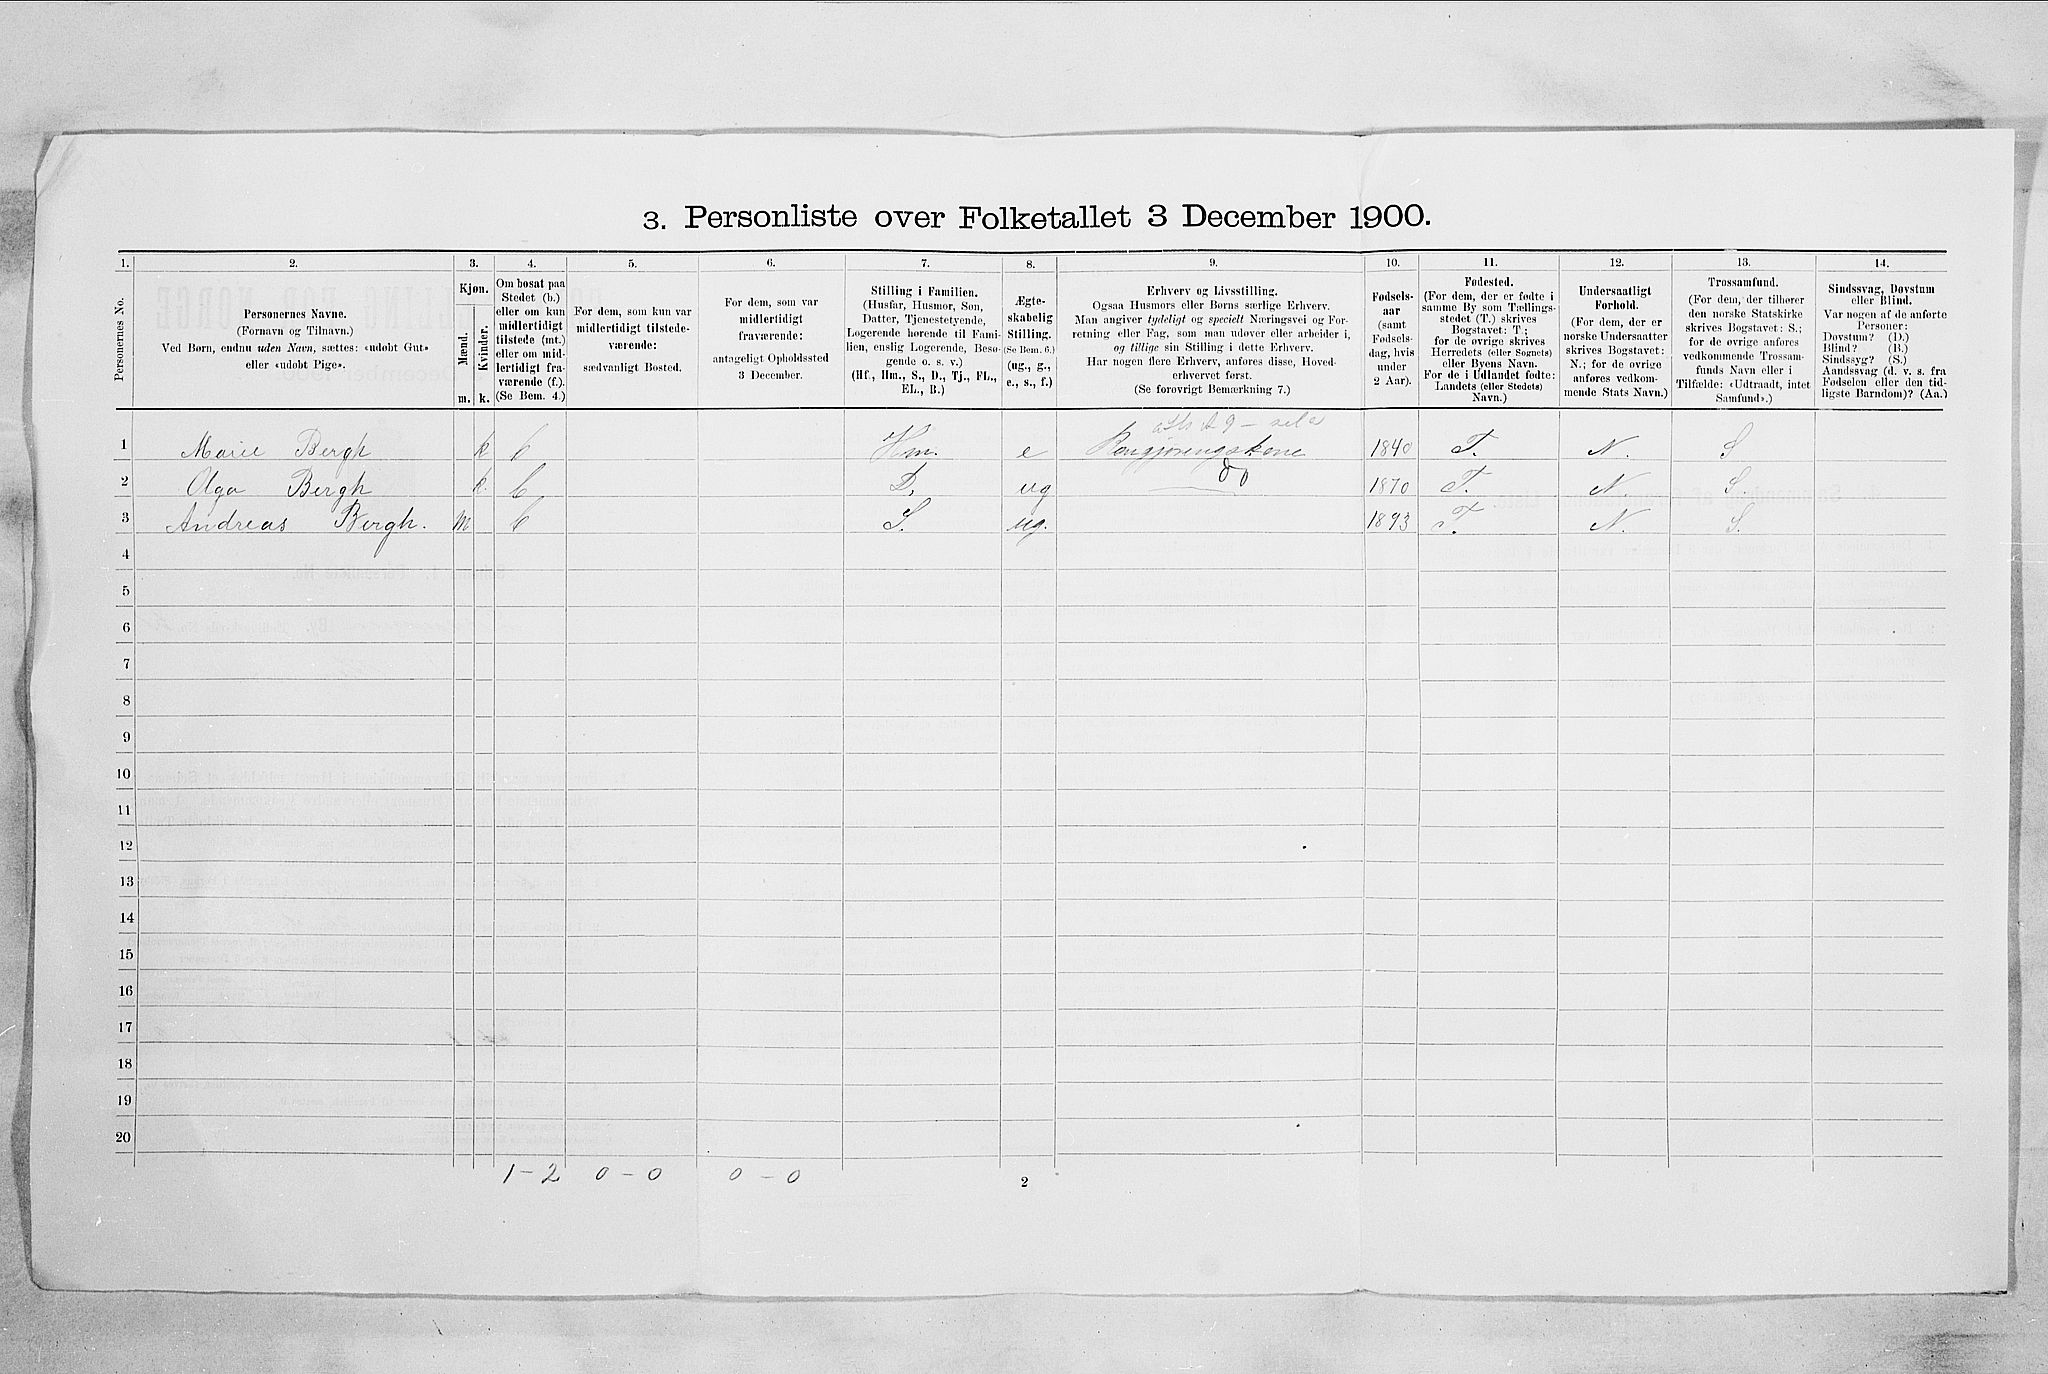 3. Personliste over Folketallet 3 December 1900.
1. 2. 3. 4. 5. 6. 7. 8. 9. 10. 11. 12. 13. 14.
Personernes No.
Personernes Navne.
(Fornavn og Tilnavn.)
Ved Børn, endnu uden Navn, sættes: «udøbt Gut»
eller «udøbt Pige».
Kjøn.
Mænd.
Kvinder.
m. k.
Om bosat paa
Stedet (b.)
eller om kun
midlertidigt
tilstede (mt.)
eller om mid-
lertidigt fra-
værende (f.).
(Se Bem. 4.)
For dem, som kun var
midlertidigt tilstede-
værende:
sædvanligt Bosted.
For dem, som var
midlertidigt
fraværende:
antageligt Opholdssted
3 December.
Stilling i Familien.
(Husfar, Husmor, Søn,
Datter, Tjenestetyende,
Logerende hørende til Fami-
lien, enslig Logerende, Besø-
gende o. s. v.)
(Hf., Hm., S., D., Tj., FL.,
EL., B.)
Ægte-
skabelig
Stilling.
(Se Bem. 6.)
(ug., g.,
e., s., f.)
Erhverv og Livsstilling.
Ogsaa Husmors eller Børns særlige Erhverv.
Man angiver tydeligt og specielt Næringsvei og For-
retning eller Fag, som man udøver eller arbeider i,
og tillige sin Stilling i dette Erhverv.
Har nogen flere Erhverv, anføres disse, Hoved-
erhvervet først.
(Se forøvrigt Bemærkning 7.)
Fødsels-
aar
(samt
Fødsels-
dag, hvis
under
2 Aar).
Fødested.
(For dem, der er fødte i
samme By som Tællings-
stedet (T.) skrives
Bogstavet: T.;
for de øvrige skrives
Herredets (eller Sognets)
eller Byens Navn.
For de i Udlandet fødte:
Landets (eller Stedets)
Navn.)
Undersaatligt
Forhold.
(For dem, der er
norske Undersaatter
skrives Bogstavet:
N.; for de øvrige
anføres vedkom-
mende Stats Navn.)
Trossamfund.
(For dem, der tilhører
den norske Statskirke
skrives Bogstavet: S.;
for de øvrige anføres
vedkommende Trossam-
funds Navn eller i
Tilfælde: «Udtraadt, intet
Samfund».)
Sindssvag, Døvstum
eller Blind.
Var nogen af de anførte
Personer:
Døvstum? (D.)
Blind? (B.)
Sindssyg? (S.)
Aandssvag (d. v. s. fra
Fødselen eller den tid-
ligste Barndom)? (Aa.)
1 Marie Bergh k b Hm. e Rengjøringskone 1840 T. N. S
2 Olga Bergh k. b D. ug do 1870 T. N. S.
3 Andreas Bergh. m b S. ug. 1893 T. N. S.
4
5
6
7
8
9
10
11
12
13
14
15
16
17
18
19
20
1 - 2 0 - 0 0 - 0
2